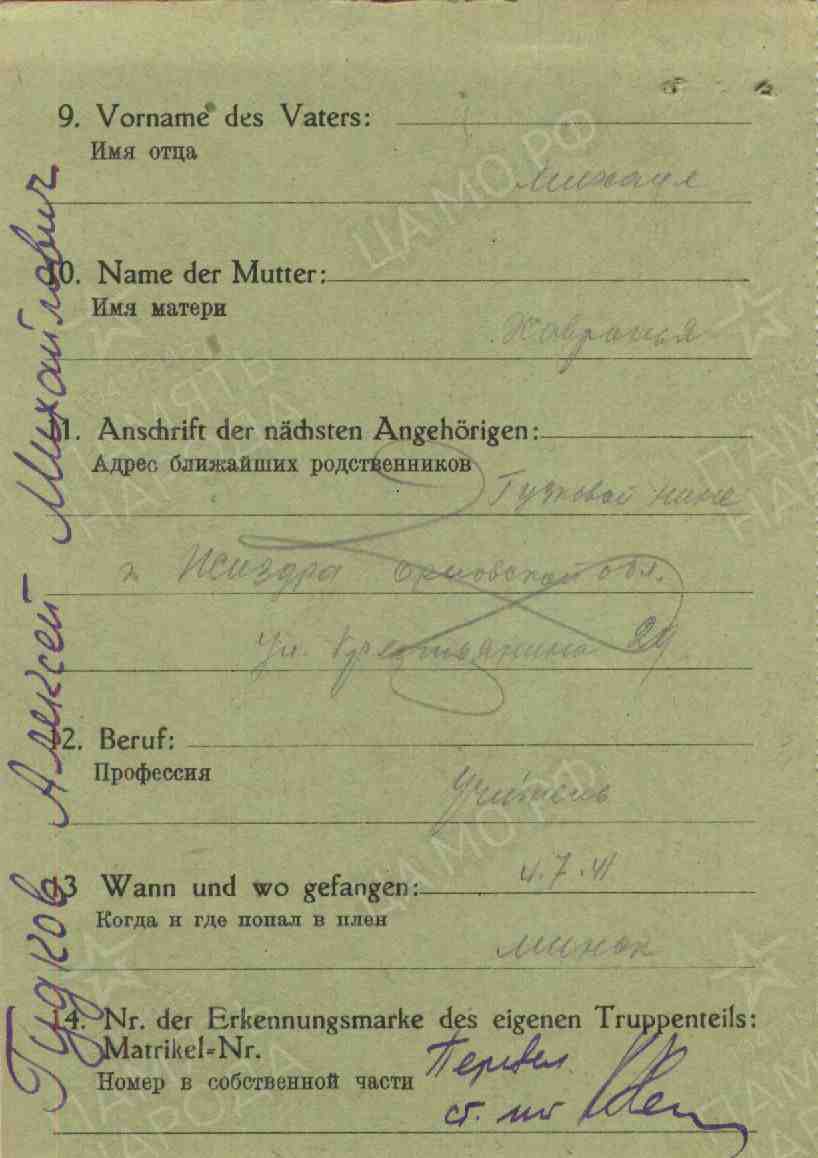 9. Vorname des Vaters:
Имя отца
Михаил
10. Name der Mutter:
Имя матери
Хавронья
11. Anschrift der nächsten Angehörigen:
Адрес ближайших родственников
Гудковой Нине
г. Жиздра Орловской обл.
ул. 24
12. Beruf:
Профессия
Учитель
13 Wann und wo gefangen:
Когда и где попал в плен
4.7.41
Минск
14. Nr. der Erkennungsmarke des eigenen Truppenteils:
Matrikel-Nr.
Номер в собственной части
Перевел
ст.
Гудков Алексей Михайлович
ЦАМО РФ
ПАМЯТЬ НАРОДА